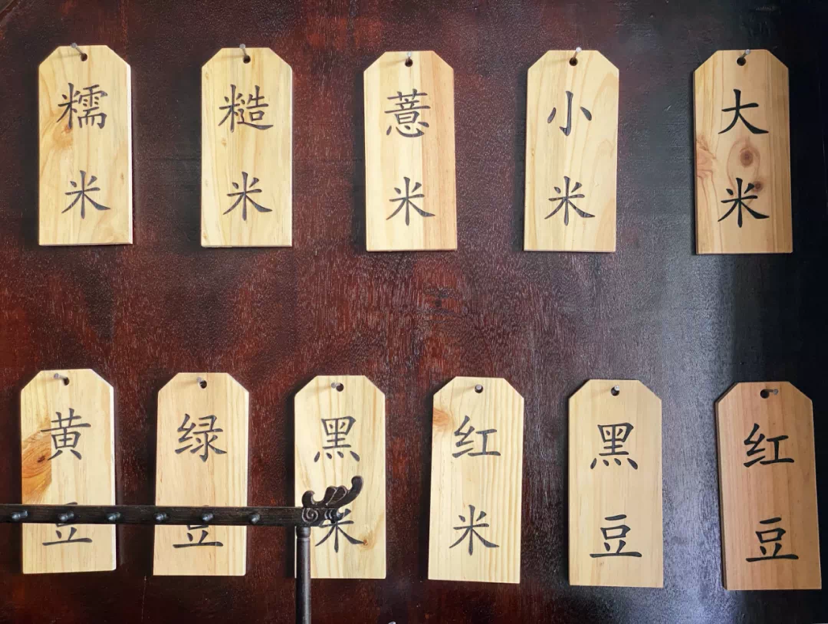 糯米
糙米
薏米
小米
大米
黄豆
绿豆
黑米
红米
黑豆
红豆